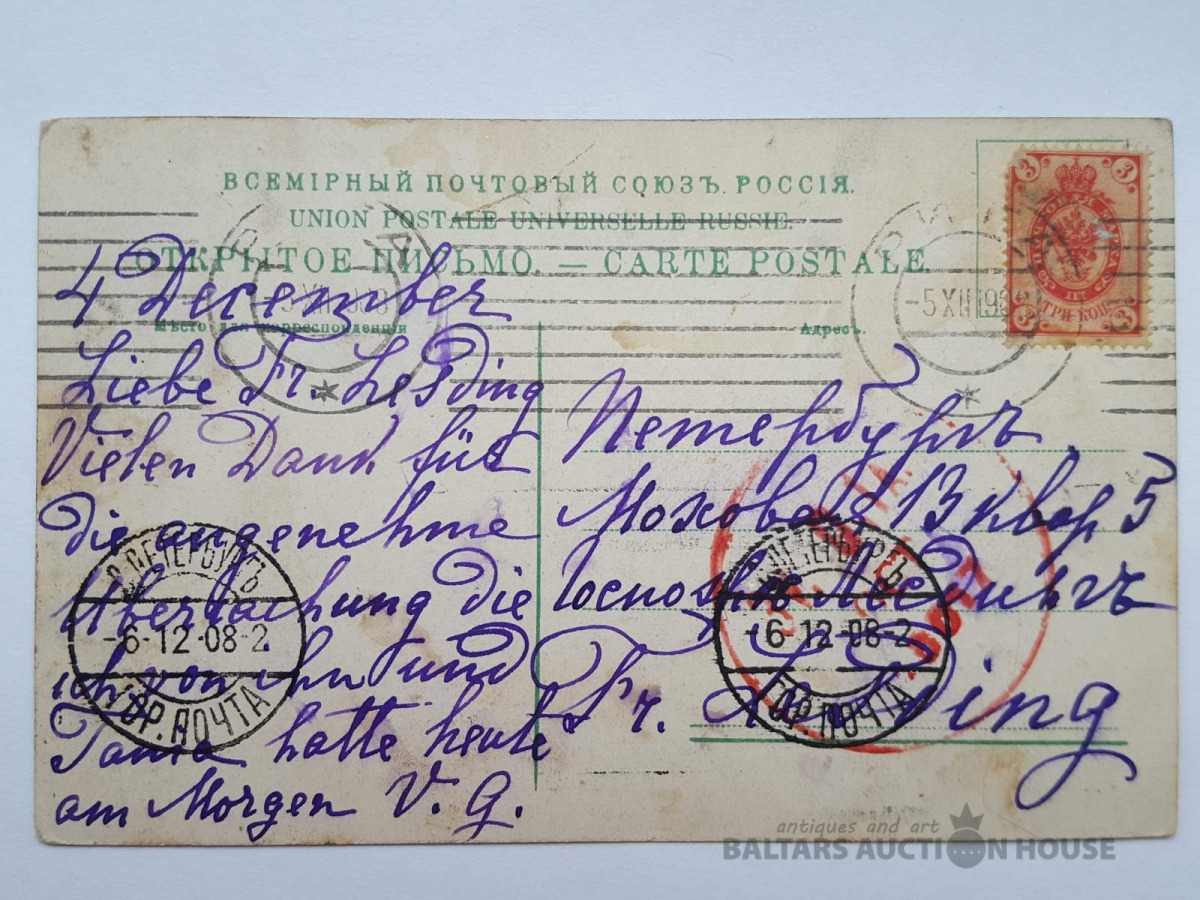 ВСЕМІРНЫЙ ПОЧТОВЫЙ СОЮЗЪ. РОССІЯ.
UNION POSTALE UNIVERSELLE RUSSIE.
ОТКРЫТОЕ ПИСЬМО. — CARTE POSTALE.
Мѣсто для корреспонденціи
Адресъ.
3 3
ПОЧТОВАЯ МАРКА
ТРИ КОП.
3 3
-5 XII 190
4 December
Liebe Fr. Lesding
Vielen Dank für
die angenehme
Überraschung die
ich von ihn und
Tanta hatte heute
am Morgen V. G.
Петербургъ
Моховая 13 квар 5
Госпожѣ Лесдингъ
Fr. Lesding
С.ПЕТЕРБУРГЪ
-6-12-08-2
ГОР. ПОЧТА
С.ПЕТЕРБУРГЪ
-6-12-08-2
ГОР. ПОЧТА
antiques and art
BALTARS AUCTION HOUSE